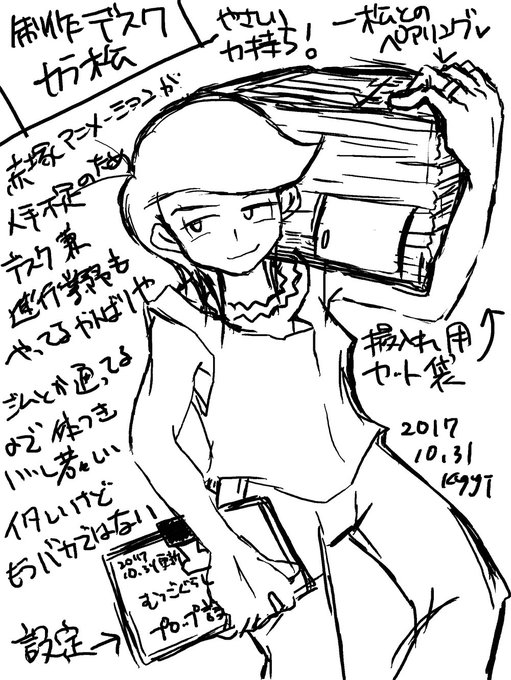 制作デスク
カラ松
やさしい
力持ち!
一松との
ペアリング
赤塚アニメーションが
人手不足のため
デスク兼
進行業務も
やってるがんばりや
ジムとか通ってる
ので体つき
いいし若々しい
イタいけど
もうバカではない
撮入れ用
カット袋
2017
10.31
設定→
2017
10.31更新
プロップ設